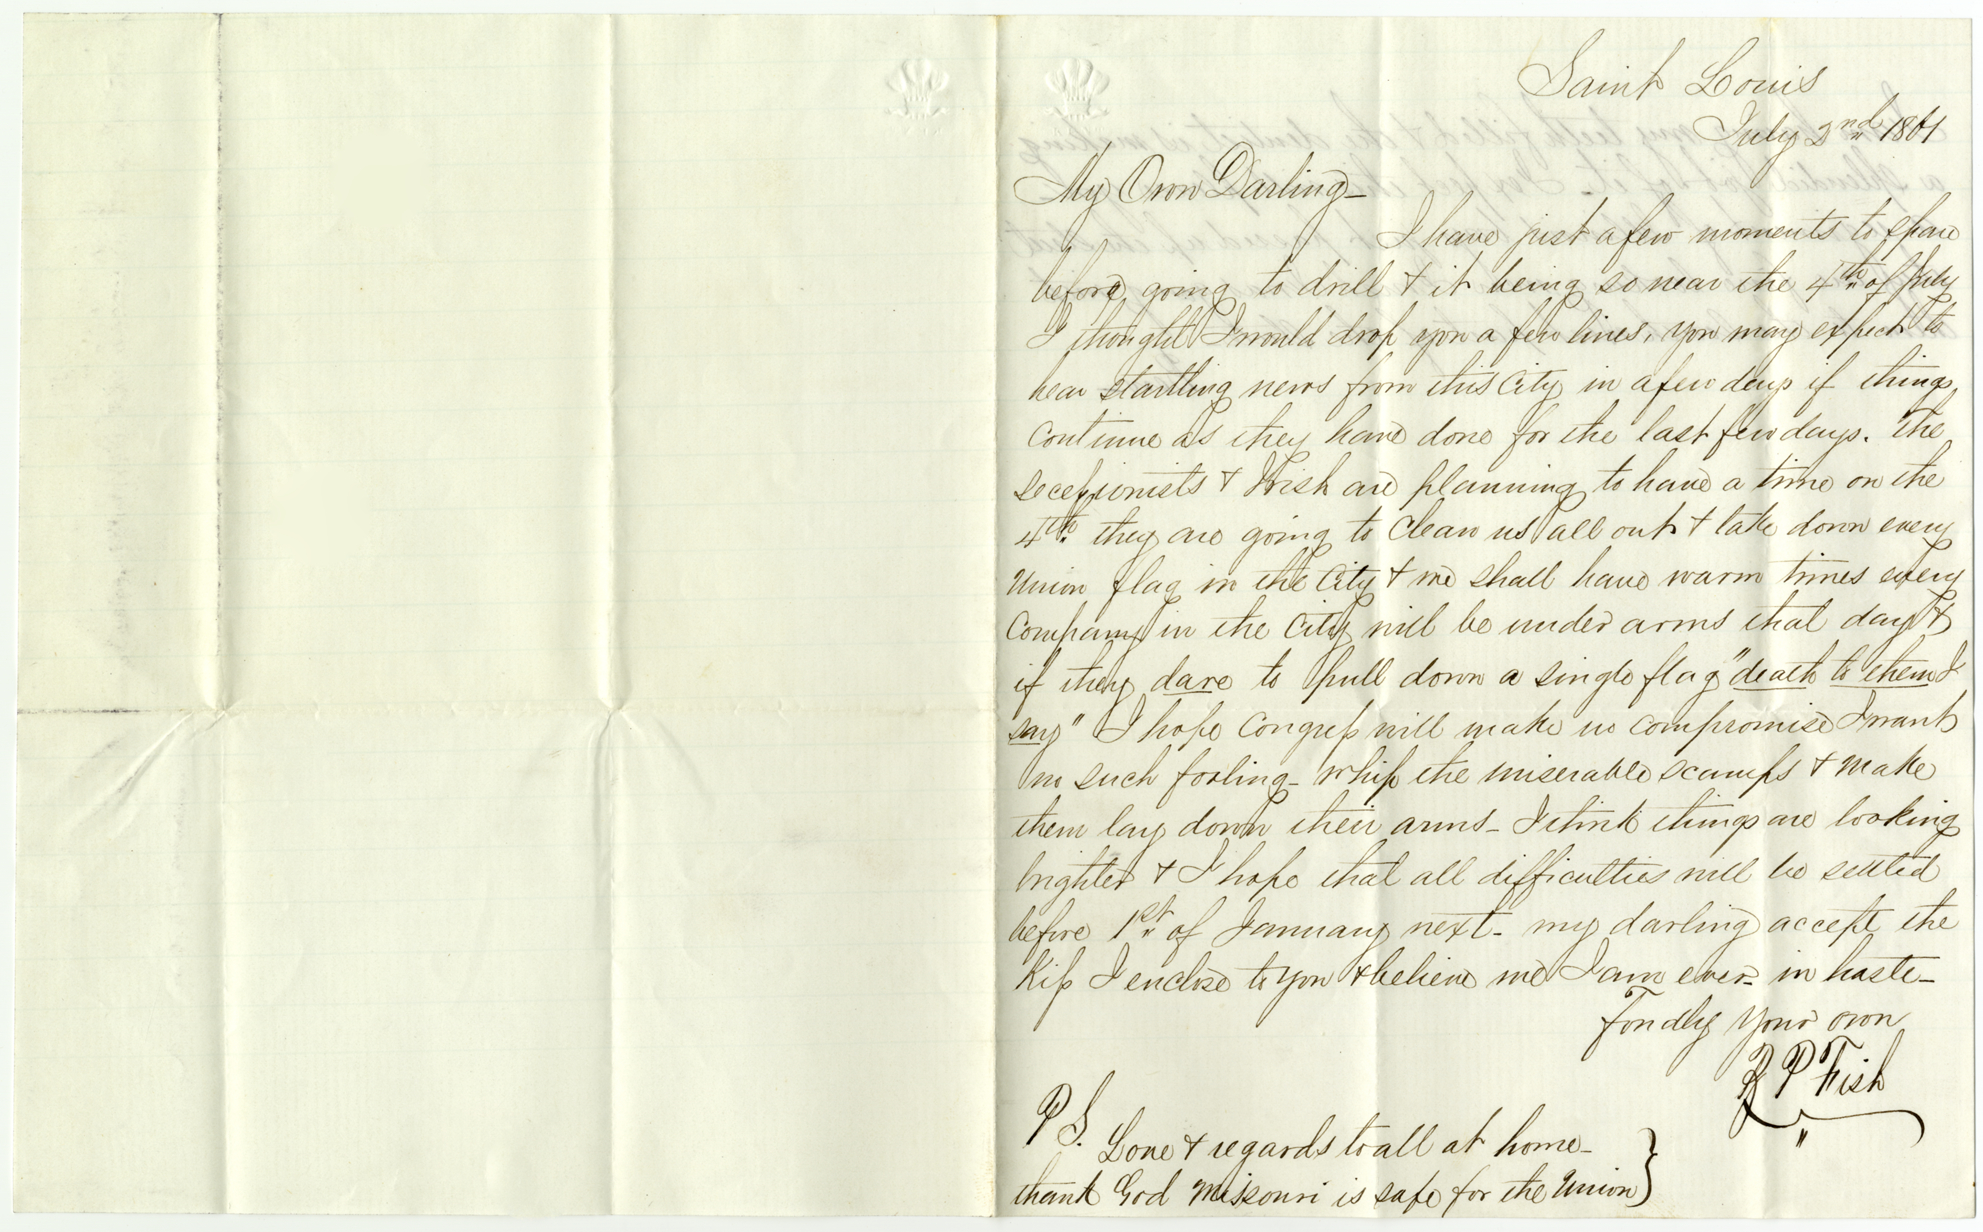 Saint Louis
July 2nd 1861
My Own Darling_
I have just a few moments to spare
before going to drill & it being so near the 4th of July
I thought I would drop you a few lines, you may expect to
hear startling news from this City in a few days if things
continue as they have done for the last few days. The
secessionists & Irish are planning to have a time on the
4th. they are going to clean us all out & take down every
Union flag in the City & we shall have warm times every
Company in the City will be under arms that day &
if they dare to pull down a single flag "death to them I
say" I hope Congress will make no compromise I want
no such fooling_ whip the miserable scamps & make
them lay down their arms_ I think things are looking
brighter & I hope that all difficulties will be settled
before 1st of January next_ my darling accept the
Kiss I enclose to you & believe me I am ever_ in haste_
Fondly your own
R P Fish
P S. Love & regards to all at home_
thank God Missouri is safe for the Union